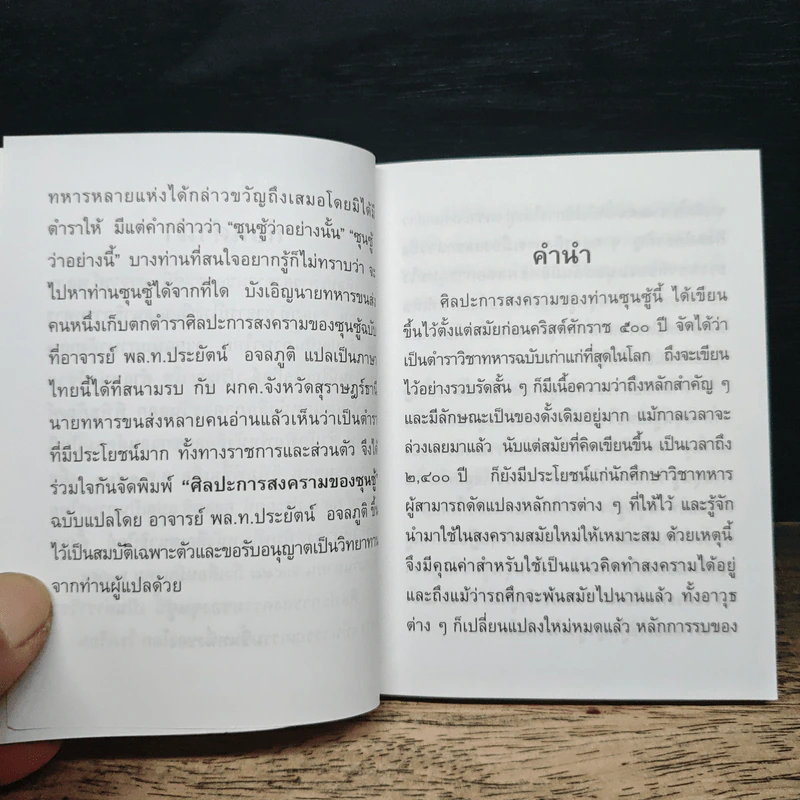 ทหารหลายแห่งได้กล่าวขวัญถึงเสมอโดยมิได้มี
ตำราให้ มีแต่คำกล่าวว่า “ซุนซู้ว่าอย่างนั้น” “ซุนซู้
ว่าอย่างนี้” บางท่านที่สนใจอยากรู้ก็ไม่ทราบว่า จะ
ไปหาท่านซุนซู้ได้จากที่ใด บังเอิญนายทหารขนส่ง
คนหนึ่งเก็บตกตำราศิลปะการสงครามของซุนซู้ฉบับ
ที่อาจารย์ พล.ท.ประยัตน์ อจลภูติ แปลเป็นภาษา
ไทยนี้ได้ที่สนามรบ กับ ผกค.จังหวัดสุราษฎร์ธานี
นายทหารขนส่งหลายคนอ่านแล้วเห็นว่าเป็นตำรา
ที่มีประโยชน์มาก ทั้งทางราชการและส่วนตัว จึงได้
ร่วมใจกันจัดพิมพ์ “ศิลปะการสงครามของซุนซู้”
ฉบับแปลโดย อาจารย์ พล.ท.ประยัตน์ อจลภูติ ขึ้น
ไว้เป็นสมบัติเฉพาะตัวและขอรับอนุญาตเป็นวิทยาทาน
จากท่านผู้แปลด้วย
คำนำ
ศิลปะการสงครามของท่านซุนซู้นี้ ได้เขียน
ขึ้นไว้ตั้งแต่สมัยก่อนคริสต์ศักราช ๕๐๐ ปี จัดได้ว่า
เป็นตำราวิชาทหารฉบับเก่าแก่ที่สุดในโลก ถึงจะเขียน
ไว้อย่างรวบรัดสั้น ๆ ก็มีเนื้อความว่าถึงหลักสำคัญ ๆ
และมีลักษณะเป็นของดั้งเดิมอยู่มาก แม้กาลเวลาจะ
ล่วงเลยมาแล้ว นับแต่สมัยที่คิดเขียนขึ้น เป็นเวลาถึง
๒,๔๐๐ ปี ก็ยังมีประโยชน์แก่นักศึกษาวิชาทหาร
ผู้สามารถดัดแปลงหลักการต่าง ๆ ที่ให้ไว้ และรู้จัก
นำมาใช้ในสงครามสมัยใหม่ให้เหมาะสม ด้วยเหตุนี้
จึงมีคุณค่าสำหรับใช้เป็นแนวคิดทำสงครามได้อยู่
และถึงแม้ว่ารถศึกจะพ้นสมัยไปนานแล้ว ทั้งอาวุธ
ต่าง ๆ ก็เปลี่ยนแปลงใหม่หมดแล้ว หลักการรบของ